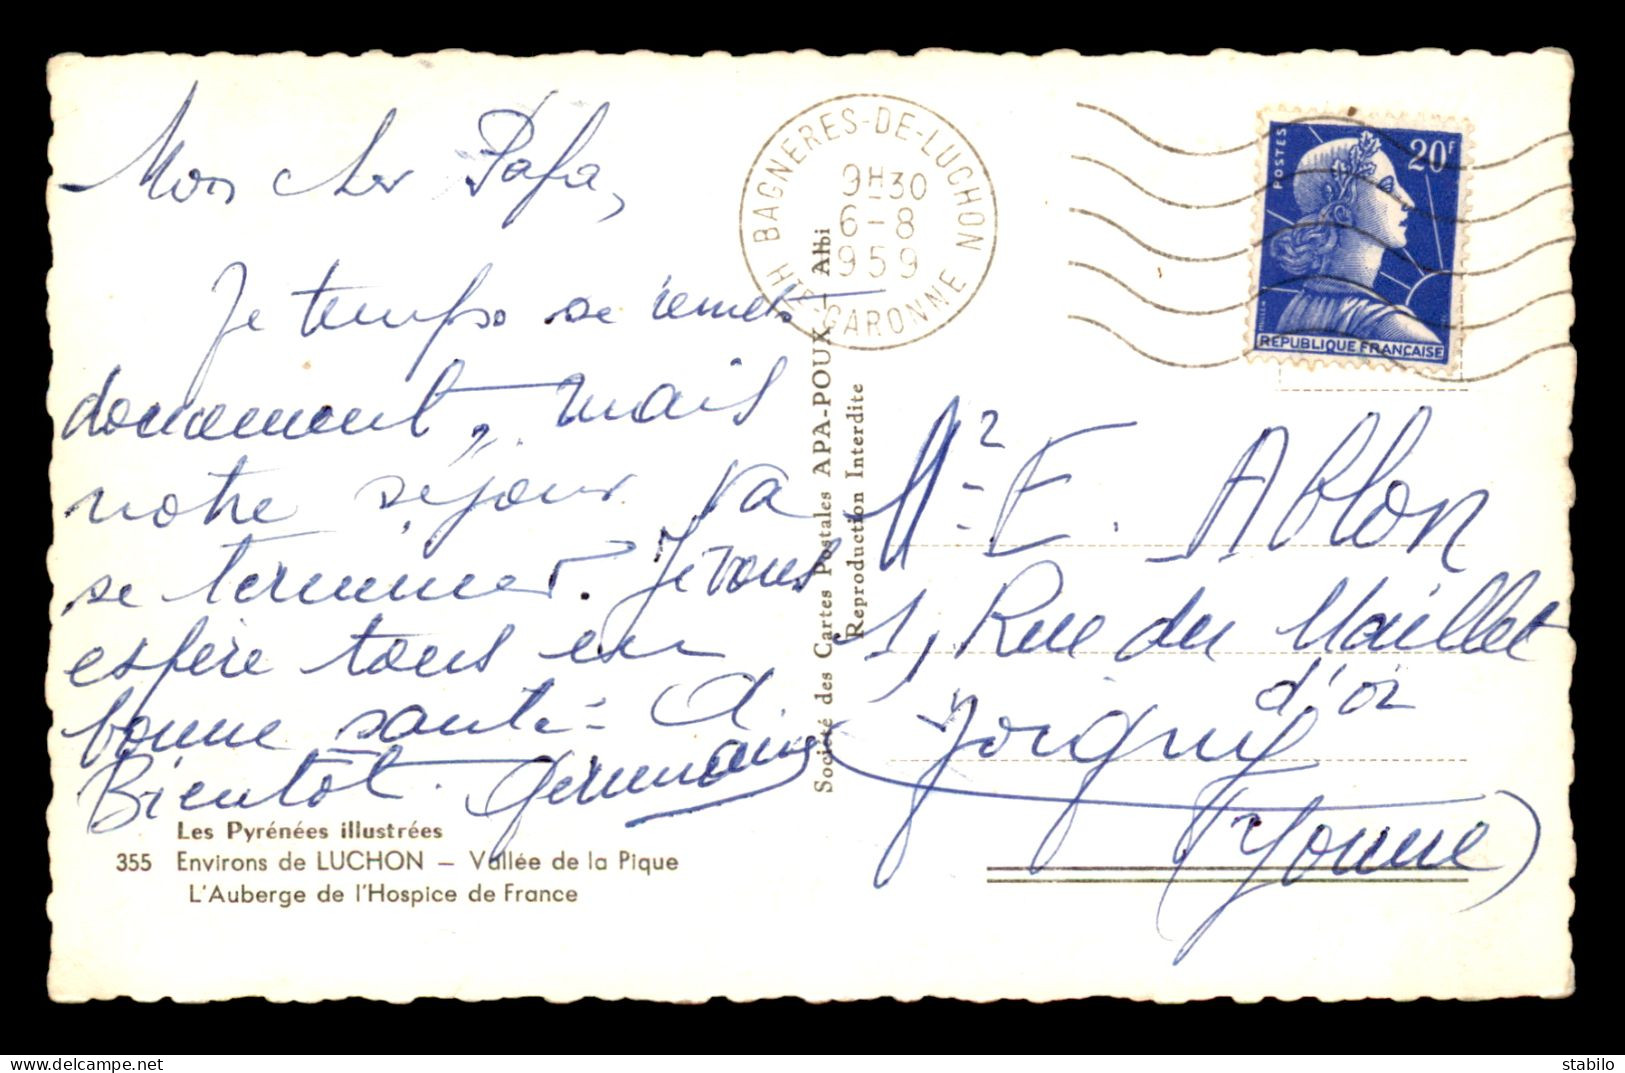 Mon cher Papa,
Je temps se remet
doucement, mais
notre séjour va
se terminer. Je vous
espère tous en
bonne santé - A.
Bientôt. Germaine
Les Pyrénées illustrées
355 Environs de LUCHON — Vallée de la Pique
L'Auberge de l'Hospice de France
Société des Cartes Postales APA-POUX - Albi
Reproduction Interdite
BAGNERES-DE-LUCHON
9H30
6-8
1959
HTE-GARONNE
POSTES
20F
REPUBLIQUE FRANÇAISE
Mr E. Ablon
1, Rue du Maillet
d'or
Joigny
(Yonne)
stabilo
delcampe.net